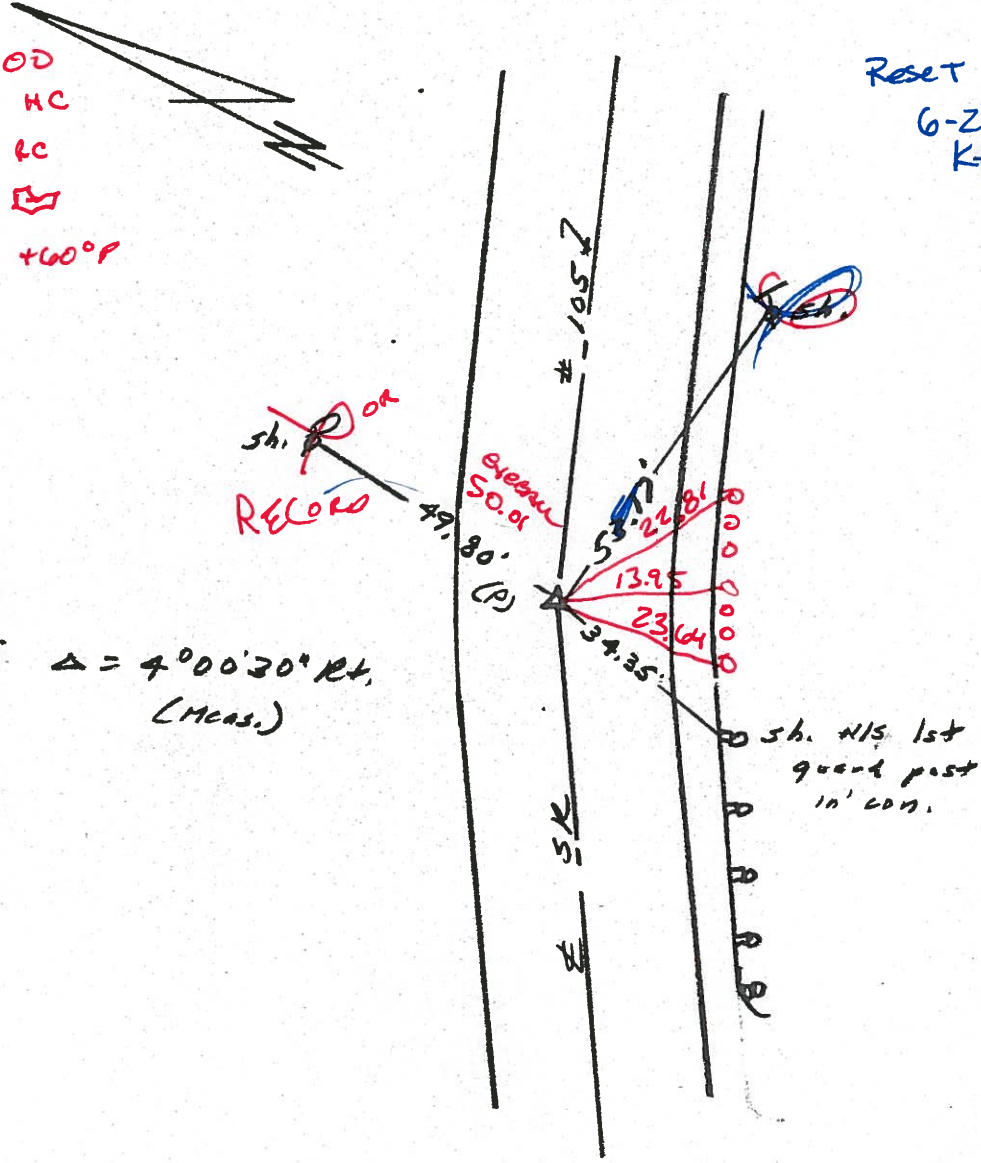 OD
HC
RC
+60°F
Reset
6-2
K-
# 105
sh.
sh.
OR
RECORD
50.01
49.80'
(P)
22.81
13.95
23.64
34.35'
Δ = 4°00'30" Rt.
(Meas.)
sh. N/S 1st
guard post
in con.
SR